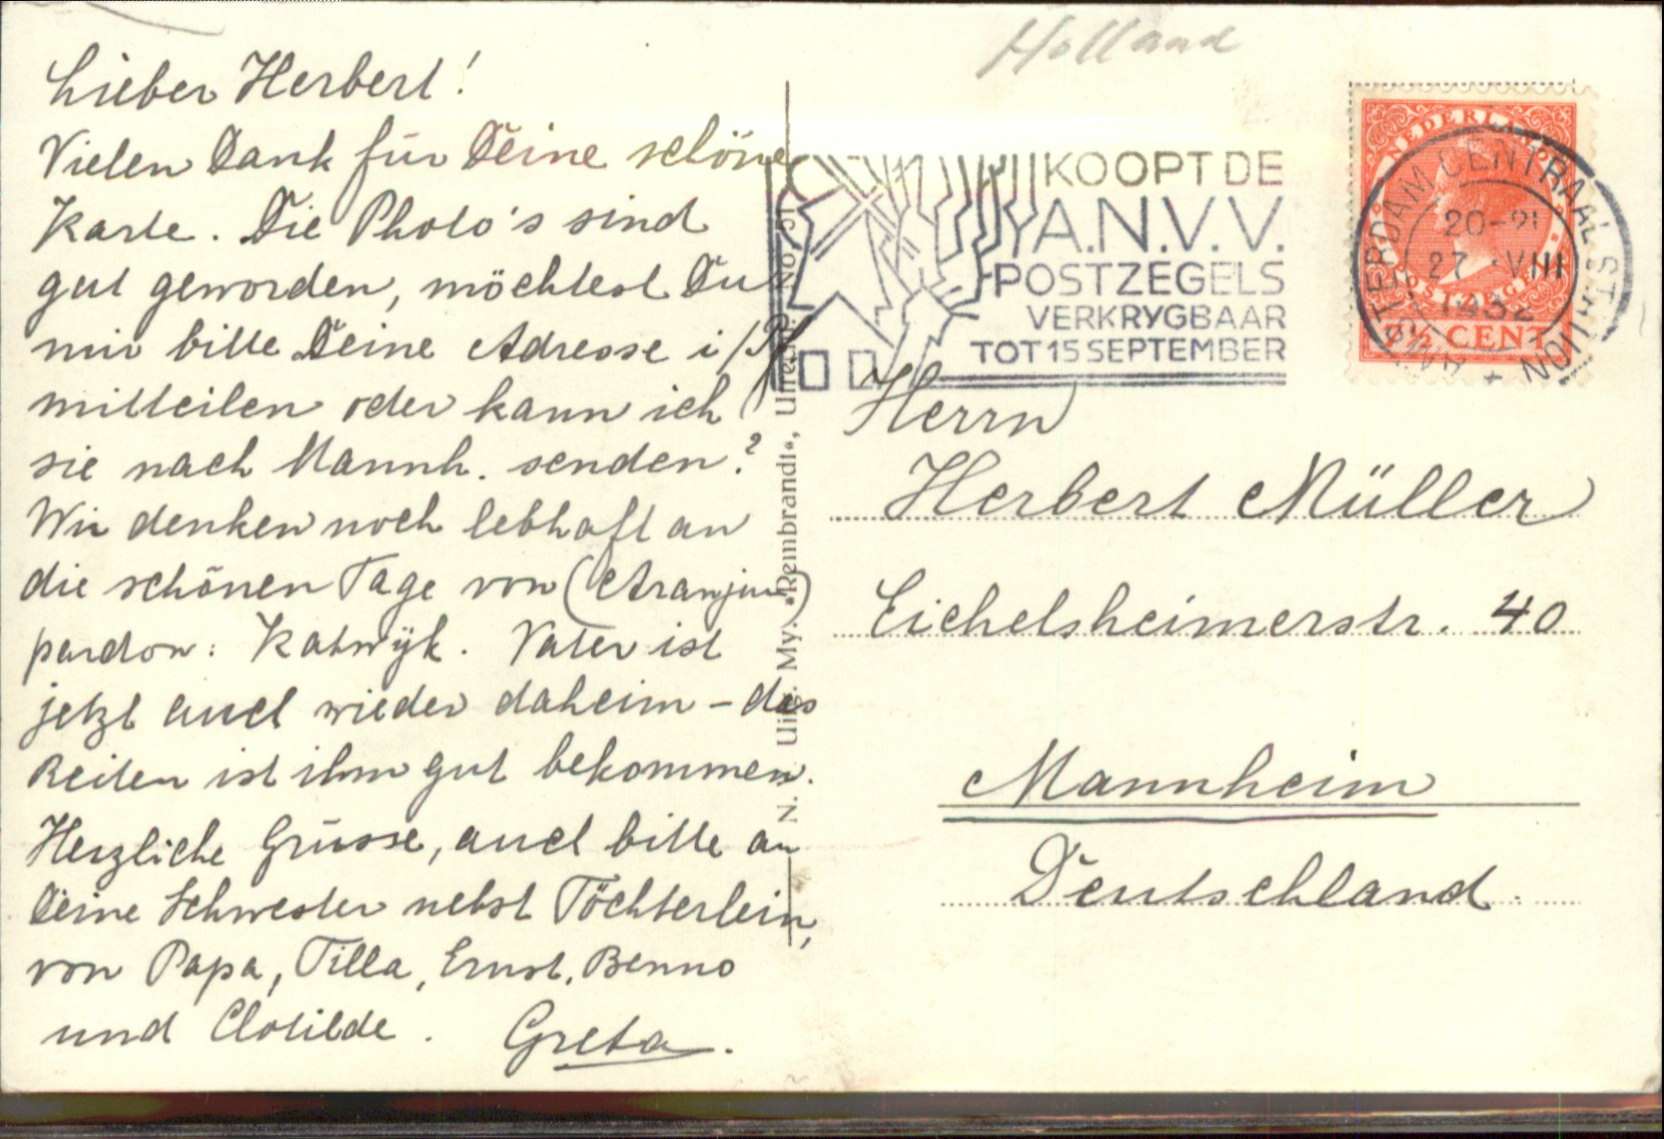 Lieber Herbert!
Vielen Dank für Deine schöne
Karte. Die Photo's sind
gut geworden, möchtest Du
mir bitte Deine Adresse i/
mitteilen oder kann ich
sie nach Mannh. senden?
Wir denken noch lebhaft an
die schönen Tage von (Aranjuez)
pardon: Katwijk. Vater ist
jetzt auch wieder daheim – das
Reiten ist ihm gut bekommen.
Herzliche Grüsse, auch bitte an
Deine Schwester nebst Töchterlein,
von Papa, Tilla, Ernst, Benno
und Clotilde.
Greta.
N. V. Uitg. My. „Rembrandt“, Utrecht. No. 51
Holland
KOOPT DE
A.N.V.V.
POSTZEGELS
VERKRYGBAAR
TOT 15 SEPTEMBER
NEDERLAND
7½ CENT
AMSTERDAM CENTRAAL STATION
20-21
27 VIII
1932
Herrn
Herbert Müller
Eichelsheimerstr. 40
Mannheim
Deutschland.